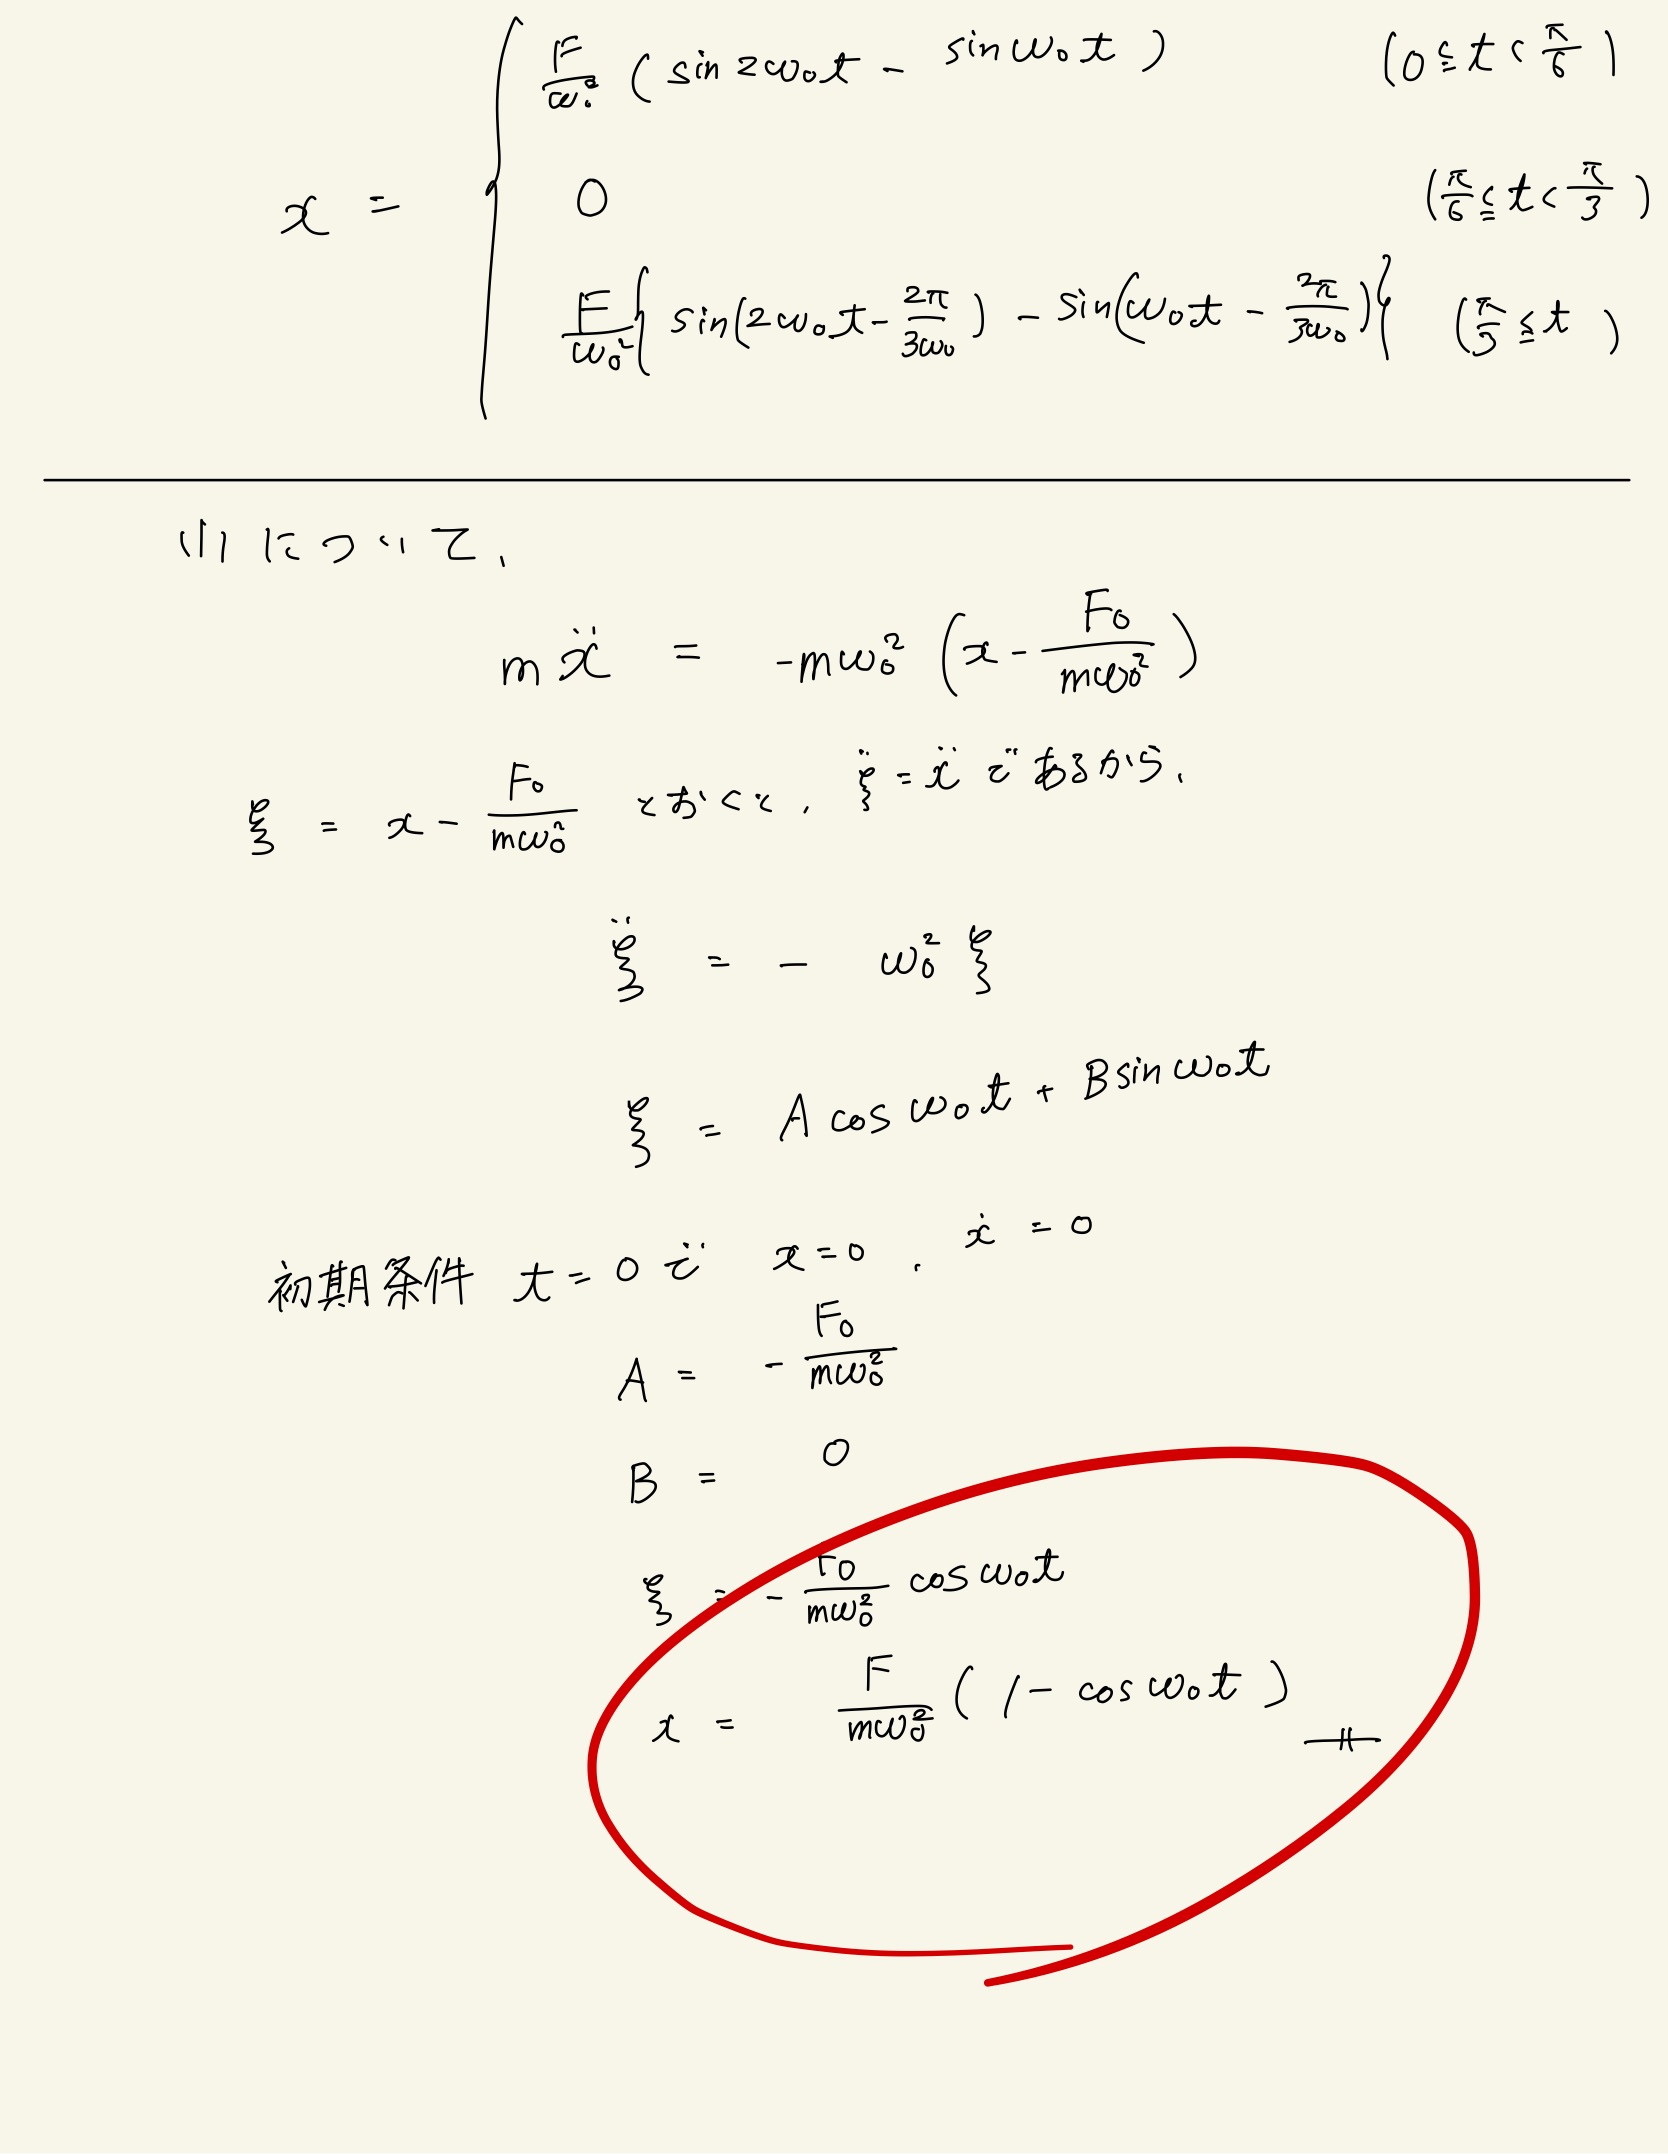 x = { F/ω₀² ( sin 2ω₀t - sin ω₀t ) (0 ≦ t < π/6)
0 (π/6 ≦ t < π/3)
F/ω₀² { sin(2ω₀t - 2π/3ω₀) - sin(ω₀t - 2π/3ω₀) } (π/3 ≦ t)
(1) について、
mẍ = -mω₀² (x - F₀/mω₀²)
ξ = x - F₀/mω₀² とおくと、 ξ̈ = ẍ であるから、
ξ̈ = - ω₀² ξ
ξ = A cos ω₀t + B sin ω₀t
初期条件 t = 0 で x = 0 , ẋ = 0
A = - F₀/mω₀²
B = 0
ξ = - F₀/mω₀² cos ω₀t
x = F/mω₀² ( 1 - cos ω₀t )